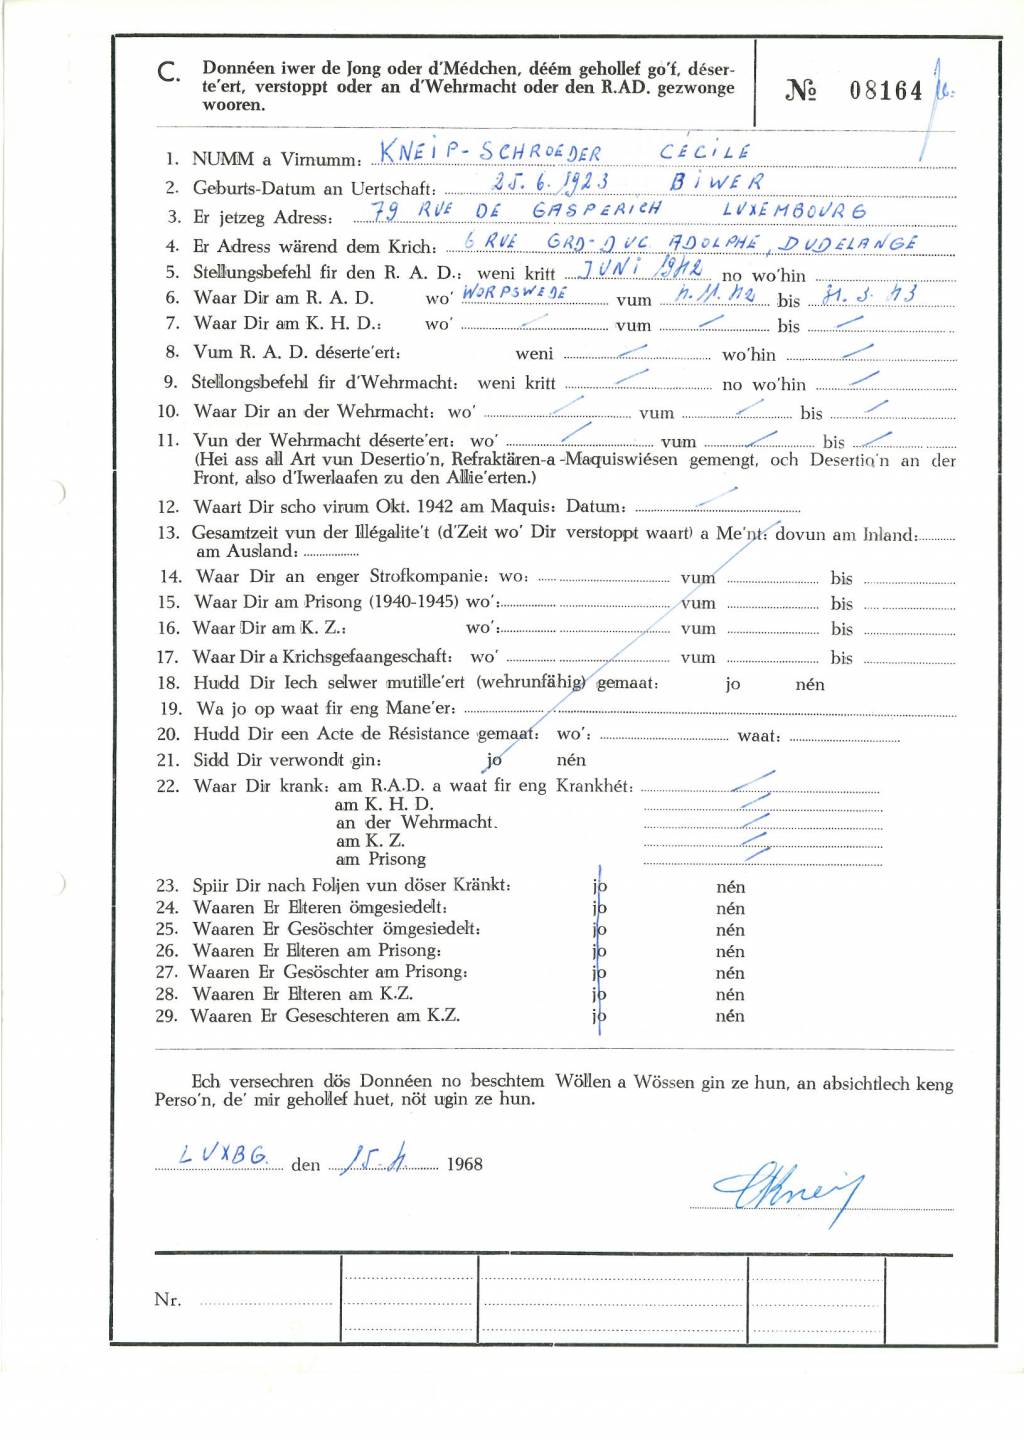 C. Donnéen iwer de Jong oder d'Médchen, déém gehollef go'f, déser-
te'ert, verstoppt oder an d'Wehrmacht oder den R.AD. gezwonge
wooren.
№ 08164
1. NUMM a Virnumm: KNEIP-SCHROEDER CÉCILE
2. Geburts-Datum an Uertschaft: 25.6.1923 BIWER
3. Er jetzeg Adress: 79 RUE DE GASPERICH LUXEMBOURG
4. Er Adress wärend dem Krich: 6 RUE GRD-DUC ADOLPHE, DUDELANGE
5. Stellungsbefehl fir den R. A. D.: weni kritt JUNI 1942 no wo'hin
6. Waar Dir am R. A. D. wo' WORPSWEDE vum 11.42 bis 31.3.43
7. Waar Dir am K. H. D.: wo' / vum / bis /
8. Vum R. A. D. déserte'ert: weni / wo'hin /
9. Stellongsbefehl fir d'Wehrmacht: weni kritt / no wo'hin /
10. Waar Dir an der Wehrmacht: wo' / vum / bis /
11. Vun der Wehrmacht déserte'ert: wo' / vum / bis /
(Hei ass all Art vun Desertio'n, Refraktären-a-Maquiswiésen gemengt, och Desertio'n an der
Front, also d'Iwerlaafen zu den Allie'erten.)
12. Waart Dir scho virum Okt. 1942 am Maquis: Datum: /
13. Gesamtzeit vun der Illégalite't (d'Zeit wo' Dir verstoppt waart) a Me'nt: dovun am Inland:
am Ausland:
14. Waar Dir an enger Strofkompanie: wo: vum bis
15. Waar Dir am Prisong (1940-1945) wo': vum bis
16. Waar Dir am K. Z.: wo': vum bis
17. Waar Dir a Krichsgefaangeschaft: wo' vum bis
18. Hudd Dir Iech selwer mutille'ert (wehrunfähig) gemaat: jo nén
19. Wa jo op waat fir eng Mane'er:
20. Hudd Dir een Acte de Résistance gemaat: wo': waat:
21. Sidd Dir verwondt gin: jo nén
22. Waar Dir krank: am R.A.D. a waat fir eng Krankhét: /
am K. H. D. /
an der Wehrmacht. /
am K. Z. /
am Prisong /
23. Spiir Dir nach Foljen vun döser Kränkt: jo nén
24. Waaren Er Elteren ömgesiedelt: jo nén
25. Waaren Er Gesöschter ömgesiedelt: jo nén
26. Waaren Er Elteren am Prisong: jo nén
27. Waaren Er Gesöschter am Prisong: jo nén
28. Waaren Er Elteren am K.Z. jo nén
29. Waaren Er Geseschteren am K.Z. jo nén
Ech versechren dös Donnéen no beschtem Wöllen a Wössen gin ze hun, an absichtlech keng
Perso'n, de' mir gehollef huet, nöt ugin ze hun.
LUXBG. den 15. 1968
CKneip
Nr.